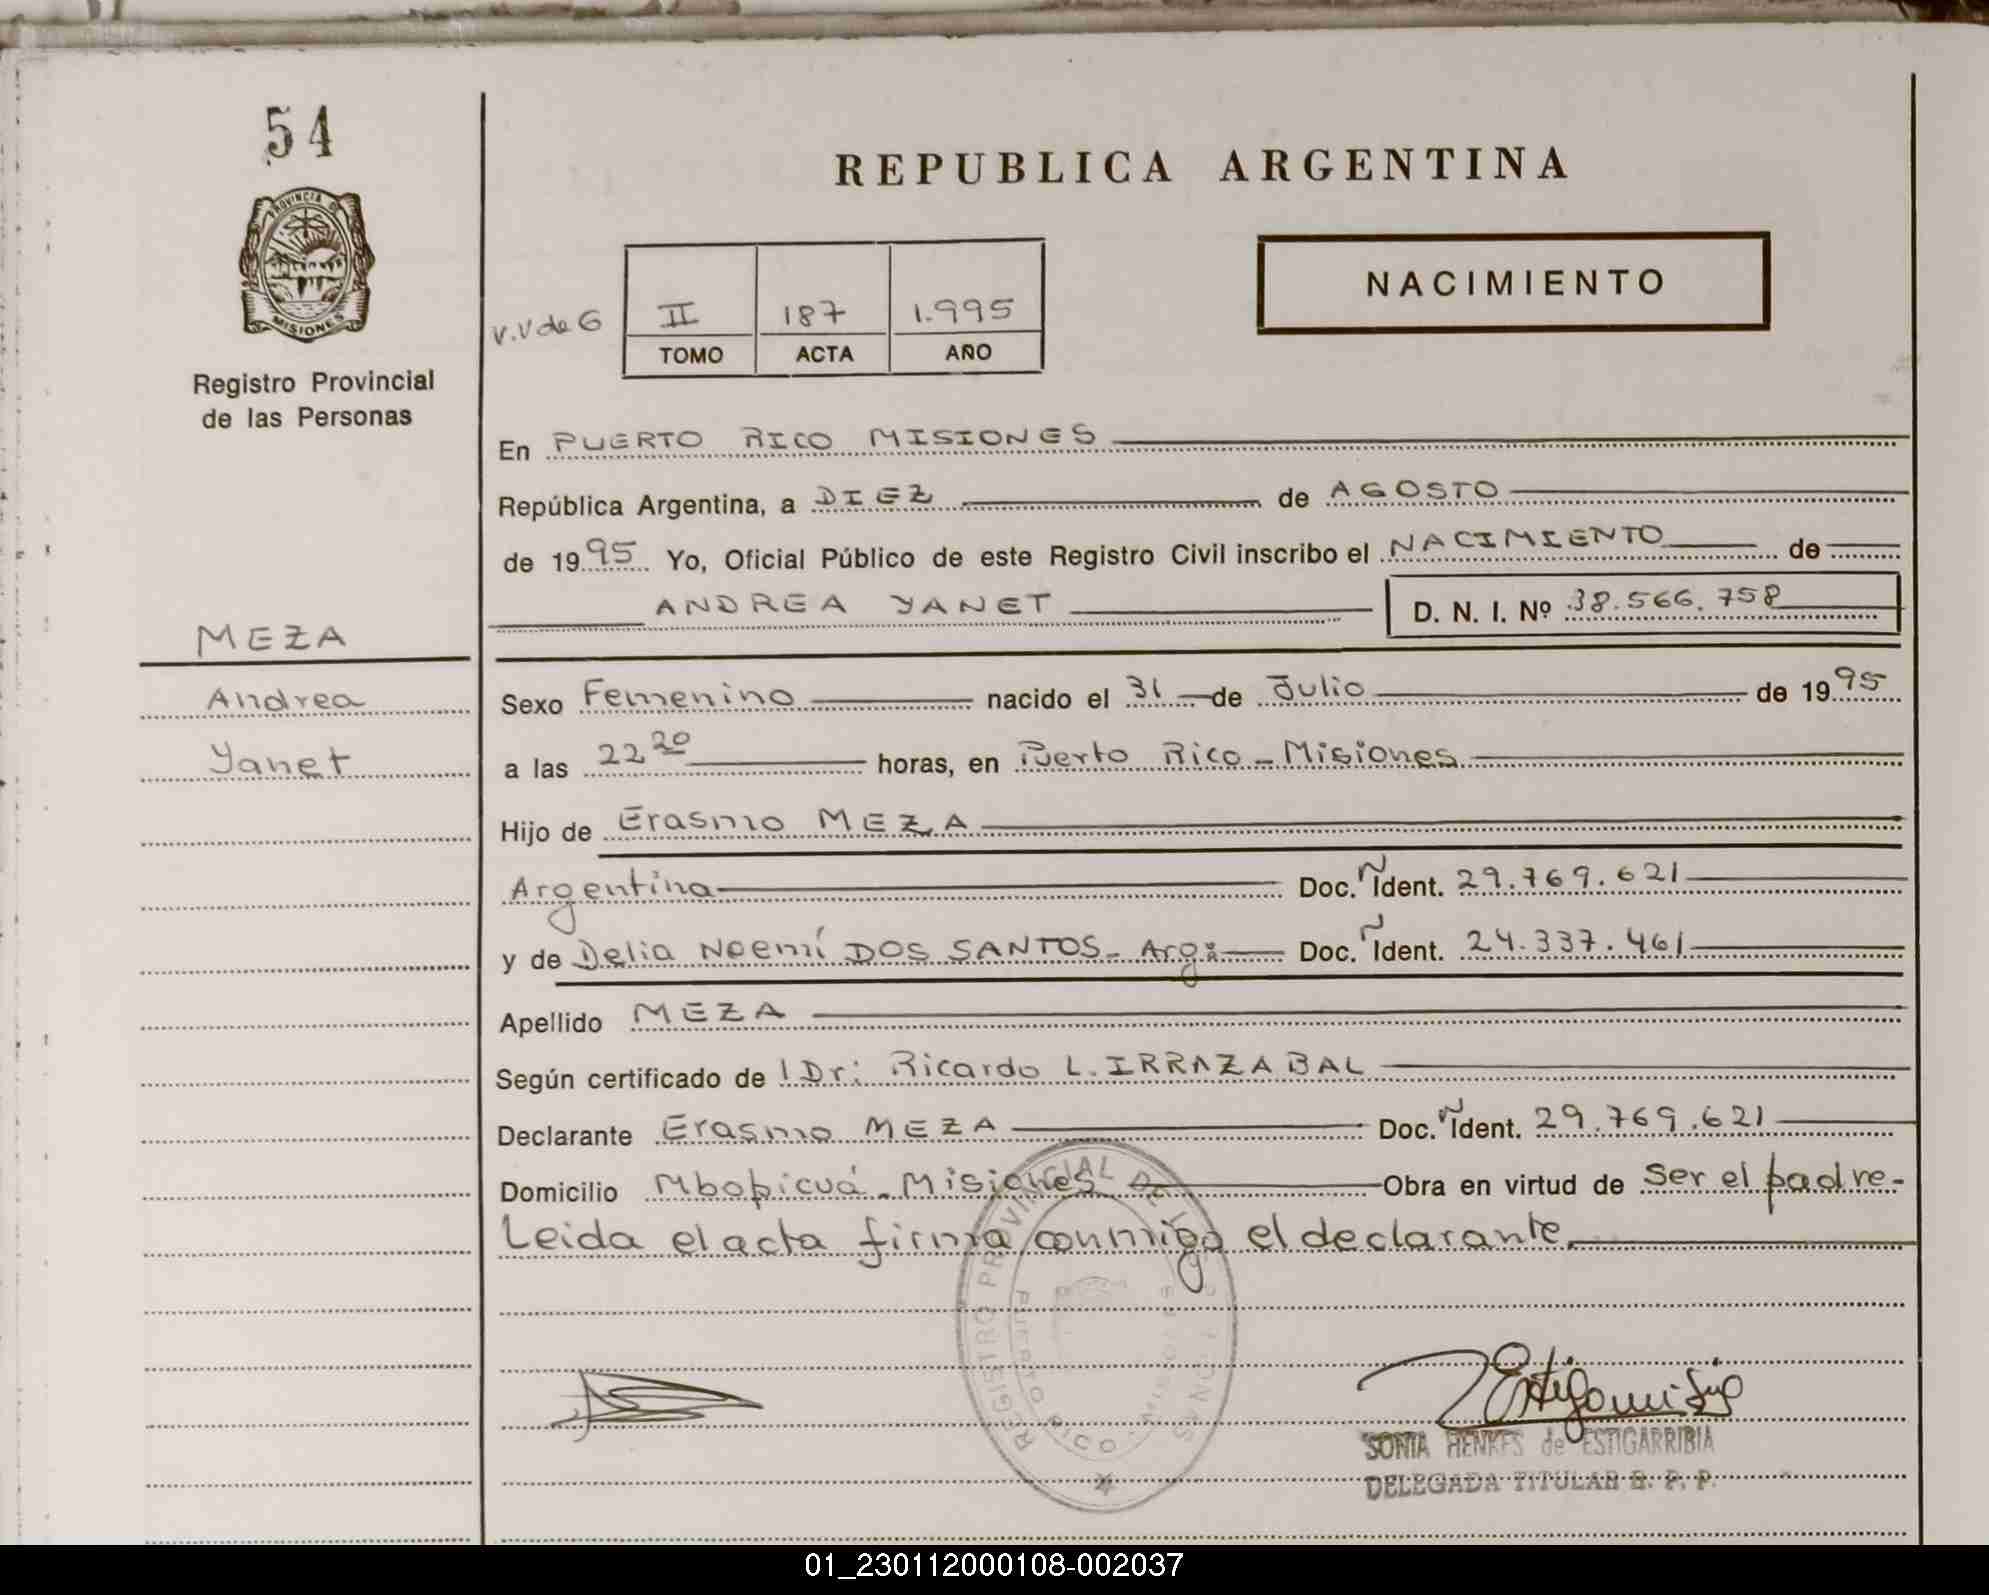 54
PROVINCIA DE
MISIONES
Registro Provincial
de las Personas
REPUBLICA ARGENTINA
NACIMIENTO
V.V de G
II 187 1.995
TOMO ACTA AÑO
En PUERTO RICO MISIONES
República Argentina, a DIEZ de AGOSTO
de 1995 Yo, Oficial Público de este Registro Civil inscribo el NACIMIENTO de
ANDREA YANET D. N. I. Nº 38.566.758
MEZA
Andrea
Yanet
Sexo Femenino nacido el 31 de Julio de 1995
a las 22 20 horas, en Puerto Rico - Misiones
Hijo de Erasmo MEZA
Argentina Doc. Ñ Ident. 29.769.621
y de Delia Noemí DOS SANTOS - Arg: Doc. Ñ Ident. 24.337.461
Apellido MEZA
Según certificado de l Dr: Ricardo L. IRRAZABAL
Declarante Erasmo MEZA Doc. Ñ Ident. 29.769.621
Domicilio Mbopicuá - Misiones Obra en virtud de ser el padre-
Leida el acta firma conmigo el declarante.
REGISTRO PROVINCIAL DE LAS PERSONAS
PUERTO RICO - MISIONES
SONIA HENKES de ESTIGARRIBIA
DELEGADA TITULAR R. P. P.
01_230112000108-002037